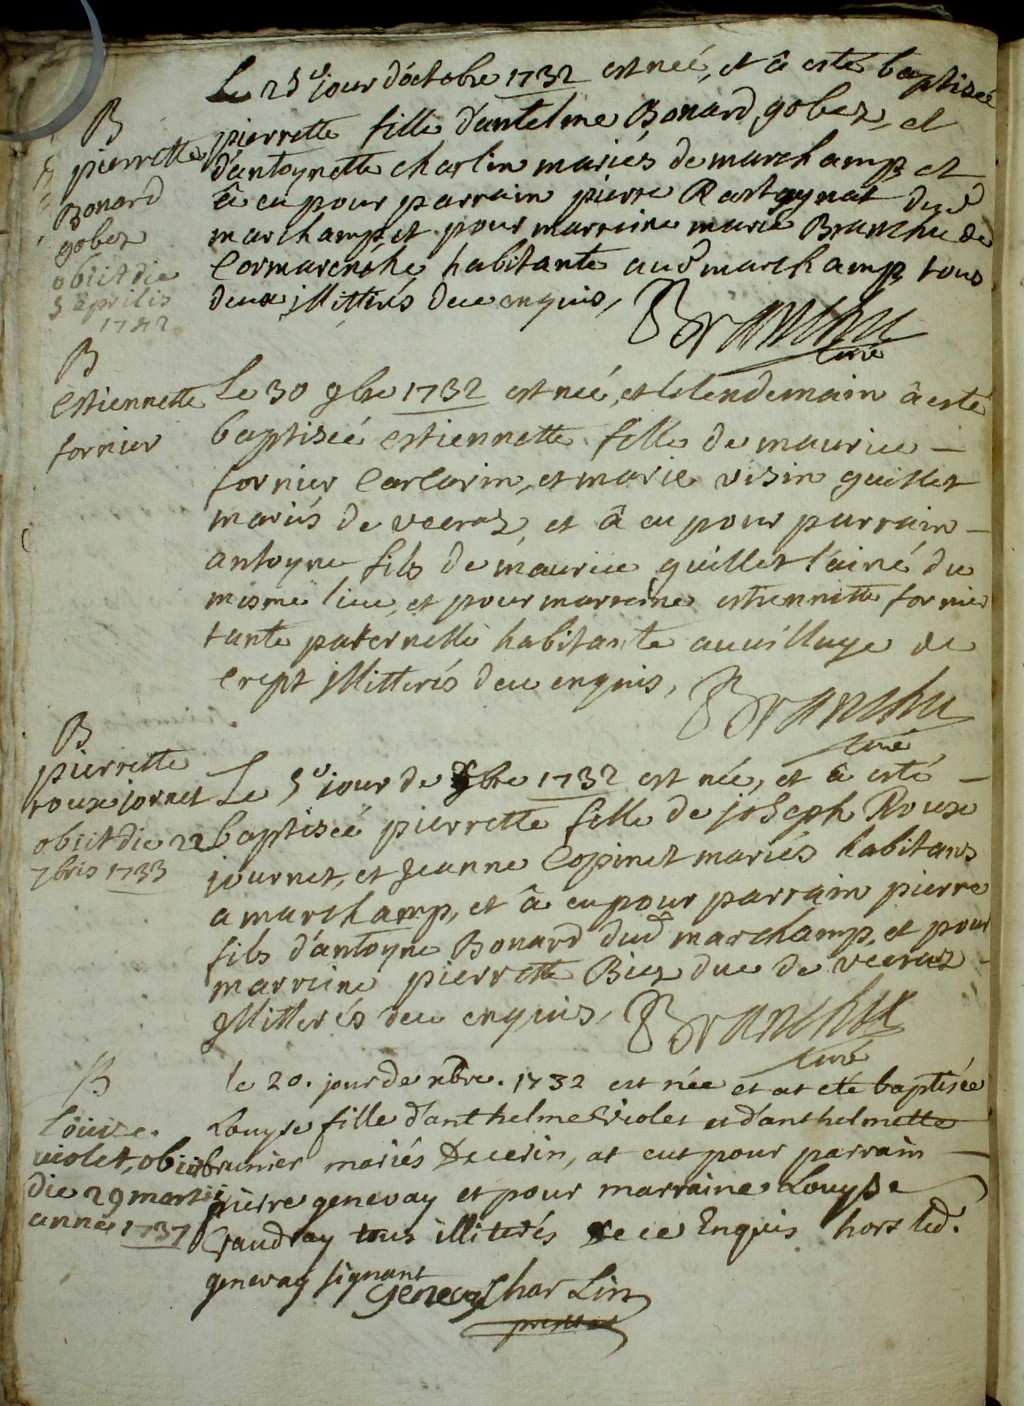 B
pierrette
Bonard
gobez
obiit die
5 aprilis
1742
Le 25e jour d'octobre 1732 est neé, et â esté baptiseé
pierrette fille d'antelme Bonard gobez, et
d'antoynette charlin mariés de marchamp, et
â eu pour parrain pierre Rostaynat dud
marchamp, et pour marreine marie Branchu de
Cormarenche habitante aud marchamp, tous
deux illitterés de ce enquis,
Branchu
curé
B
Estiennette
fornier
Le 30 9bre 1732 est neé, et le lendemain â esté
baptiseé estiennette fille de maurice
fornier Carlarin, et marie visin guillet
mariés de veeraz, et â eu pour parrain
antoyne fils de maurice guillet l'ainé du
mesme lieu, et pour marreine estiennette fornier
tante paternelle habitante au village de
Crept illitterés de ce enquis,
Branchu
curé
B
pierrette
roux jornet
obiit die 22
7bris 1733
Le 5e jour de xbre 1732 est née, et â esté
baptiseé pierrette fille de joseph Roux
journet, et jeanne Copinet mariés habitans
a marchamp, et â eu pour parrain pierre
fils d'antoyne Bonard dud marchamp, et pour
marreine pierrette Biez due de veeraz
illitterés de ce enquis,
Branchu
curé
B
Loüize
violet, obiit
die 29 martii
anne 1737
le 20. jour de xbre. 1732 est née et at eté baptisée
Louyse fille d'anthelme Violet et d'anthelmette
brunier mariés De cerin, at eut pour parrain
pierre genevay et pour marraine Louyse
vaudray tous illiterés de ce Enquis hors led.
genevay signant
genevay Charlin